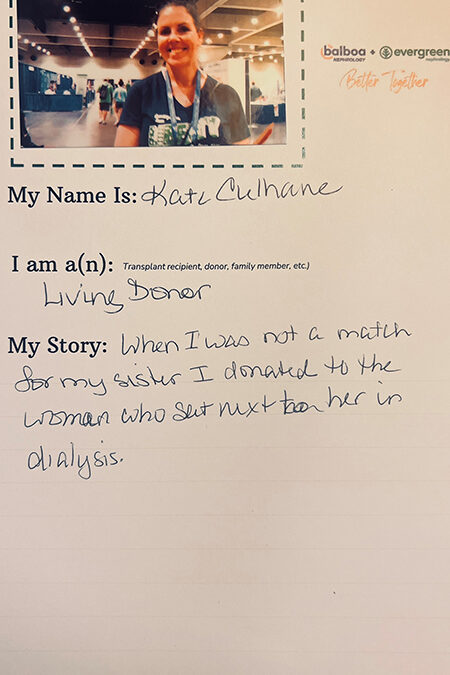 balboa + evergreen
NEPHROLOGY nephrology
Better Together
My Name Is: Kate Culhane
I am a(n): Transplant recipient, donor, family member, etc.)
Living Donor
My Story: When I was not a match
for my sister I donated to the
woman who sat next her in
dialysis.